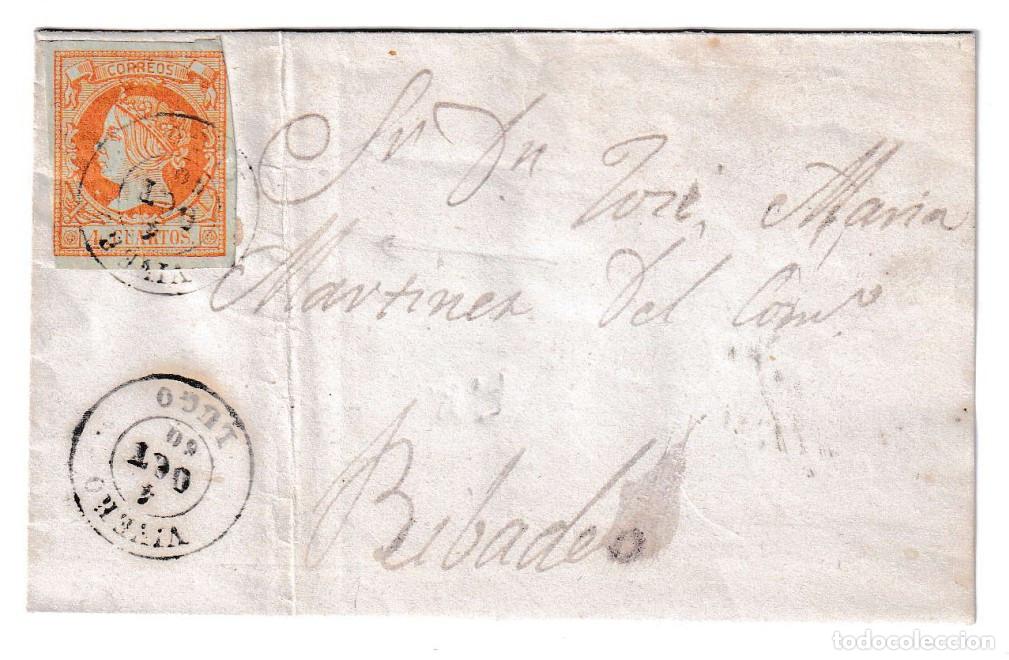 CORREOS
4 CUARTOS.
Sr Dn José Maria
Martinez Del Comº
Ribadeo
LUGO
60
OCT
4
VIVERO
todocoleccion